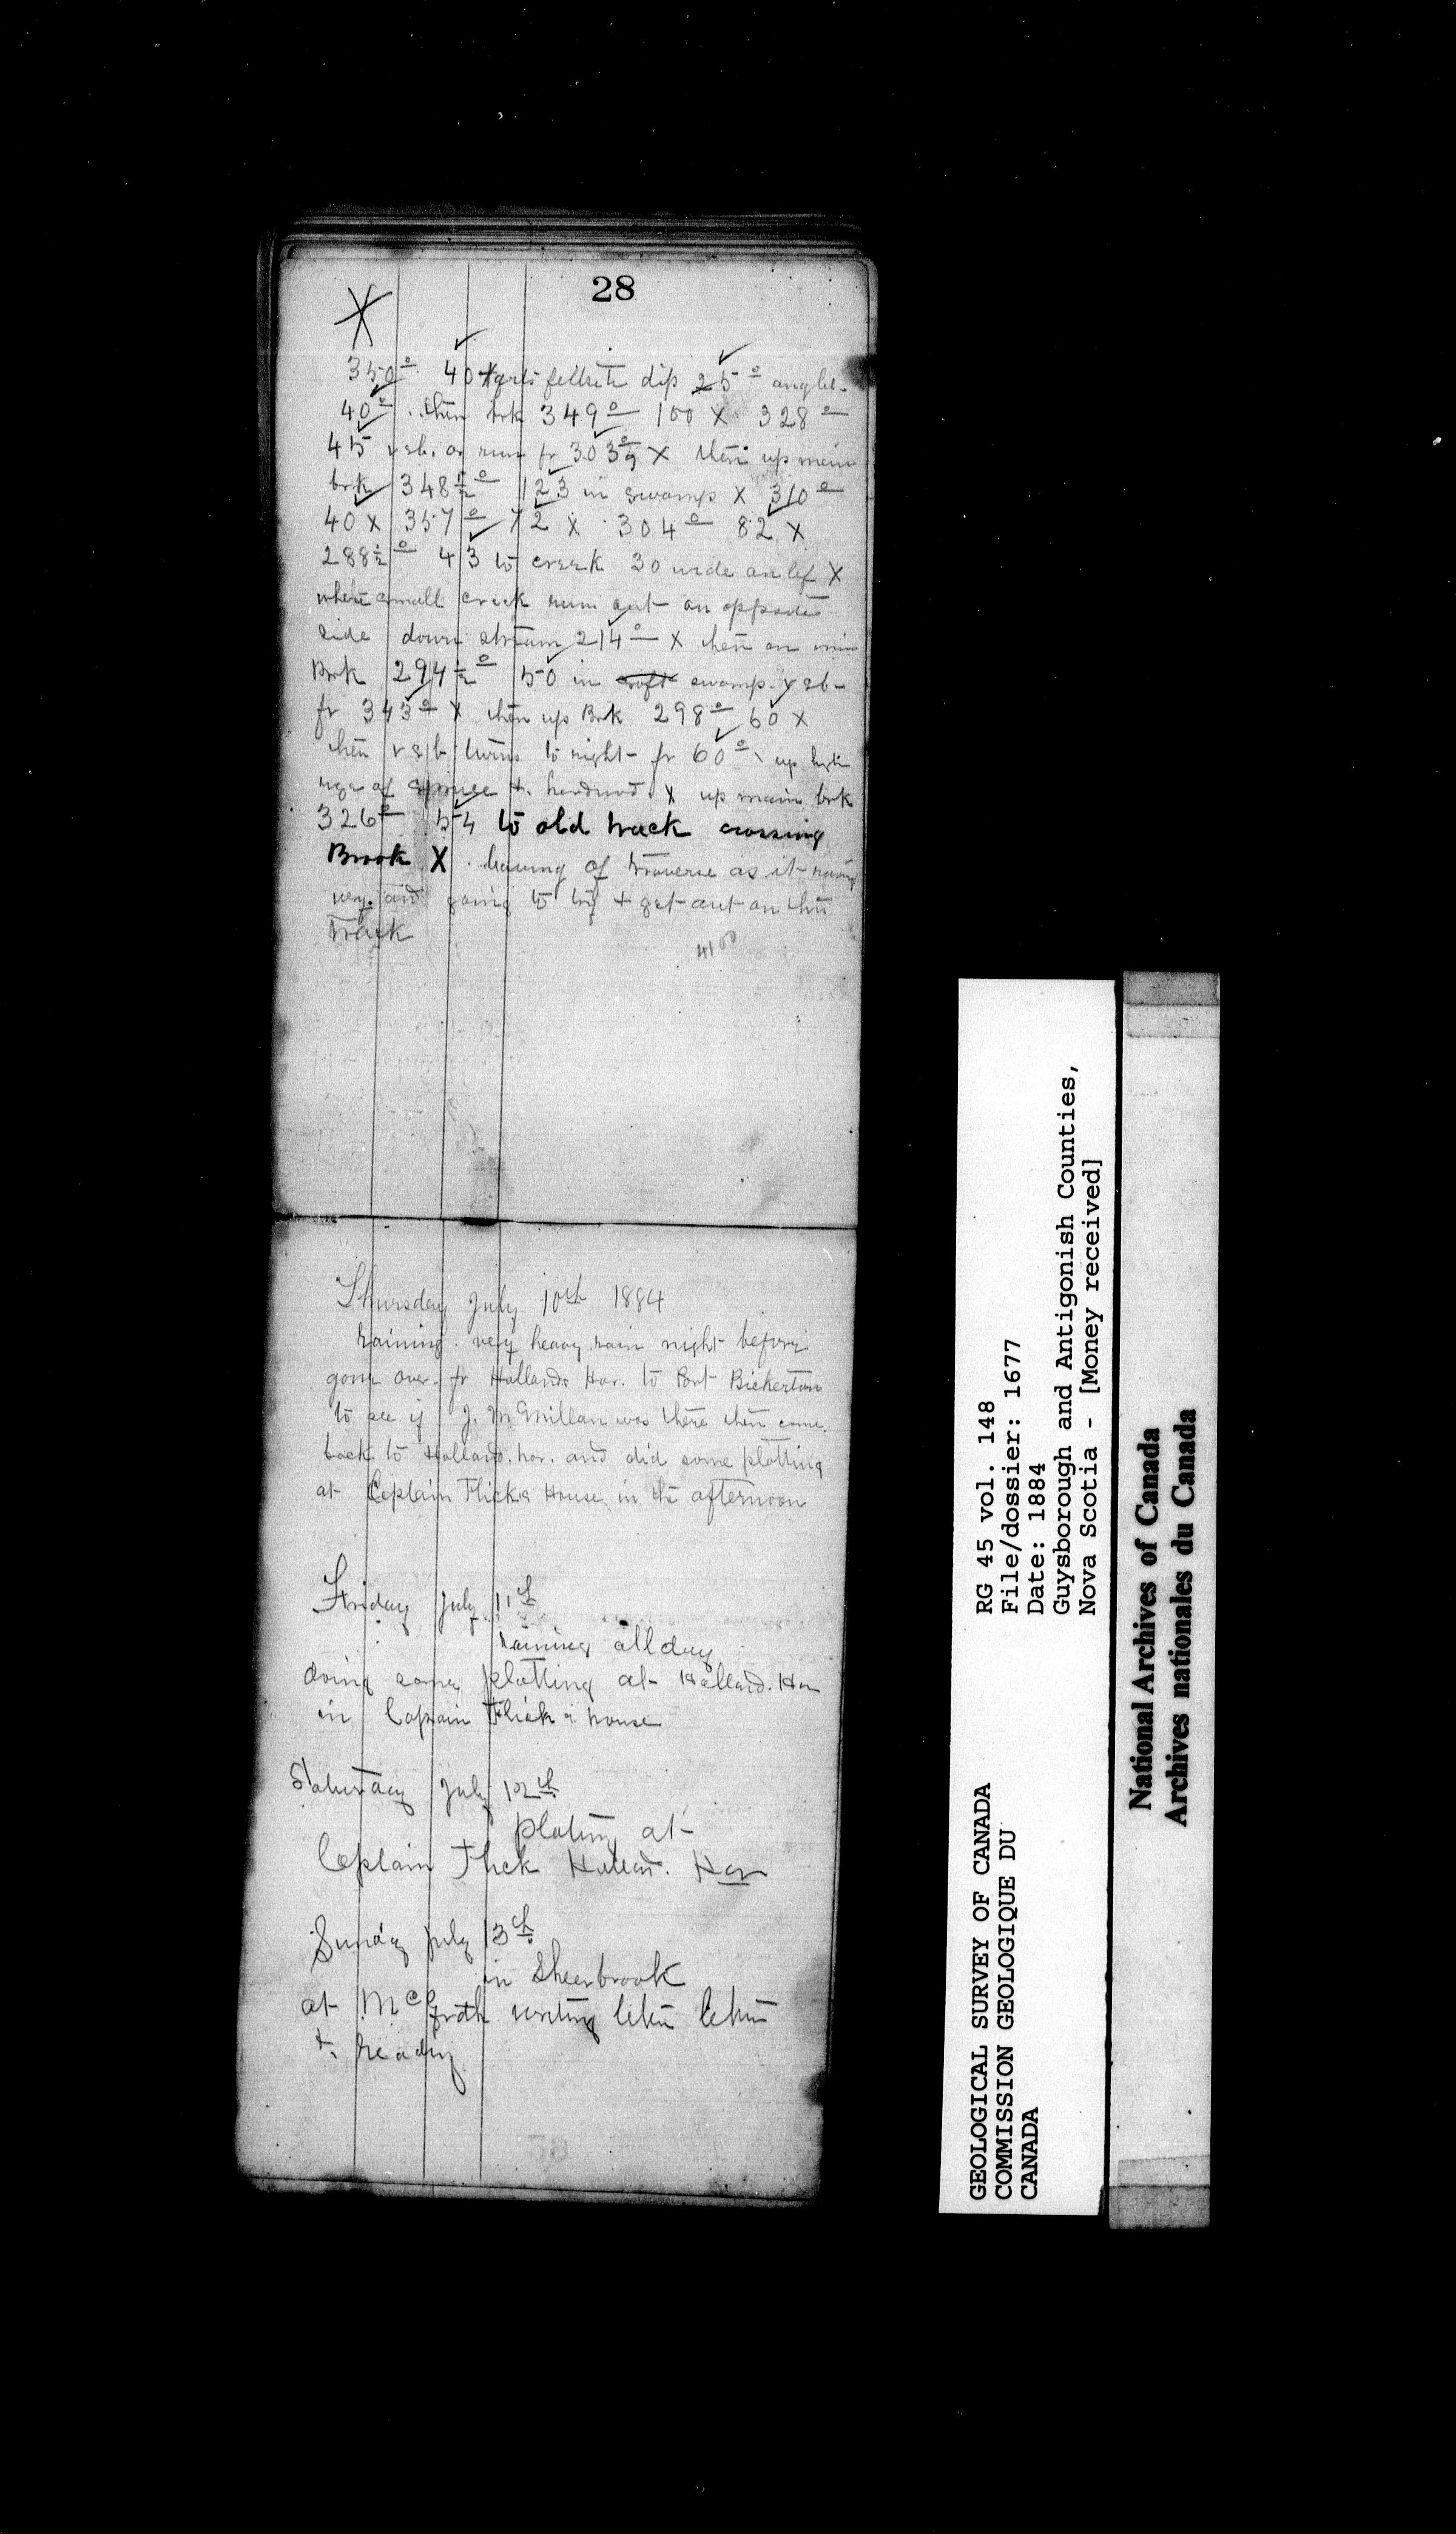 28
X
350° 40 X gris felsite dip 25° angle
40° then brk 349° 100 X 328°
45 v sb. or run fr 303° X then up main
brk 348½° 123 in swamp X 310°
40 X 357° 72 X 304° 82 X
288½° 43 to creek 30 wide on lef X
where small creek runs out on opposite
side down stream 214° X then on main
Brk 294½° 50 in swamp. v sb-
fr 343° X then up Brk 298° 60 X
then v sb turns to right fr 60° up high
of spruce +. hardwood X up main brk
326° 54 to old track crossing
Brook X. leaving of traverse as it raining
very and going to try + get out on this
Track
4100
Thursday July 10th 1884
raining. very heavy rain night before
gone over fr Hollands Har. to Port Bickerton
to see if J. McMillan was there then came
back to Holland. har. and did some plotting
at Captain Flicks House in the afternoon
Friday July 11th
raining all day
doing some plotting at Holland. Har
in Captain Flick s house
Saturday July 12th
plating at
Captain Flick Holland. Har
Sunday July 13th
in Sheerbrook
at McGrath writing letter letter
+. reading
RG 45 vol. 148
File/dossier: 1677
Date: 1884
Guysborough and Antigonish Counties,
Nova Scotia - [Money received]
GEOLOGICAL SURVEY OF CANADA
COMMISSION GEOLOGIQUE DU
CANADA
National Archives of Canada
Archives nationales du Canada